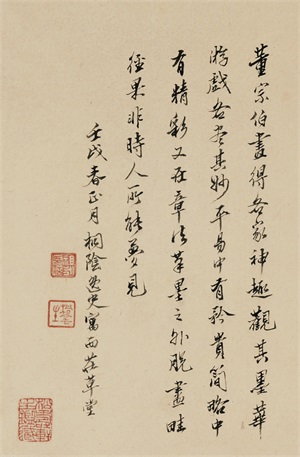 董宗伯畫得各家神趣觀其墨華
游戲各尽其妙平易中有矜貴簡略中
有精彩又在章法筆墨之外脫畫畦
徑果非時人所能夢見
壬戌春正月桐陰逸史寫西莊草堂